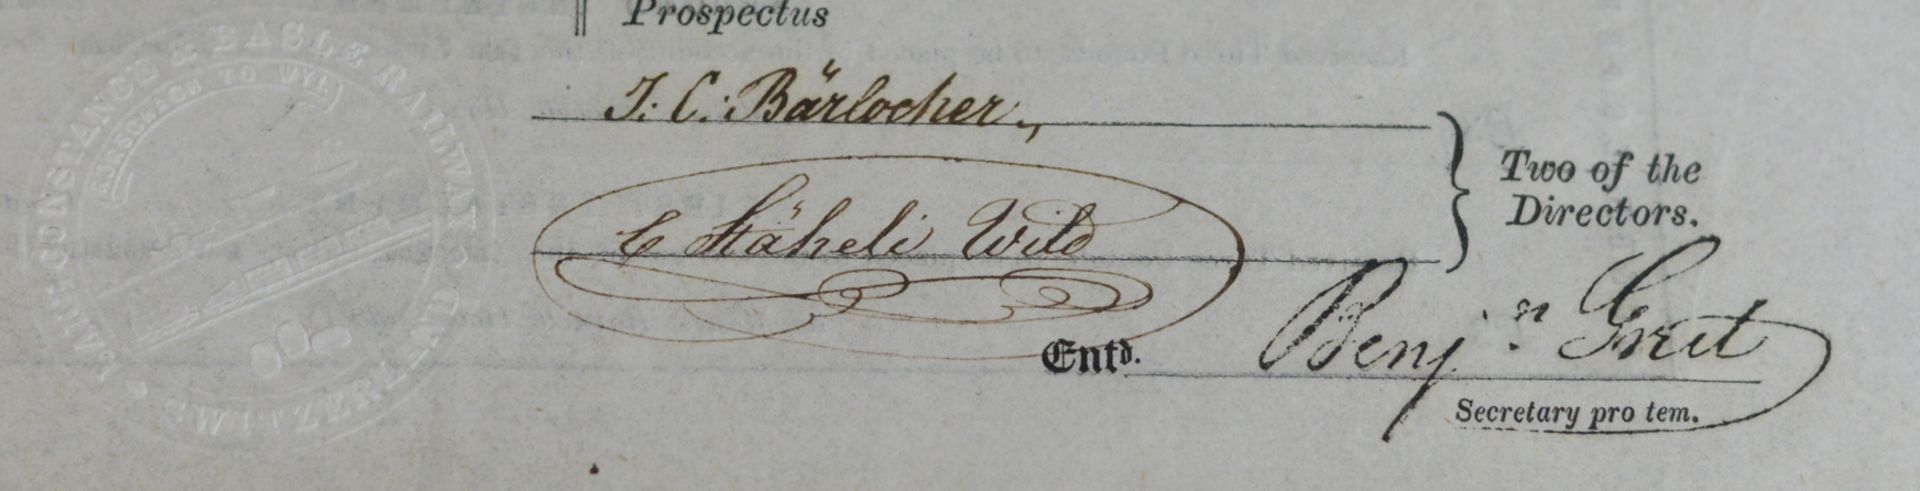 Prospectus
J. C. Bärlocher
Two of the
Directors.
C Stäheli Wild
Entd. Benjn
Secretary pro tem.
CONSTANCE & BASLE RAILWAY
RORSCHACH TO WYL
SWITZERLAND